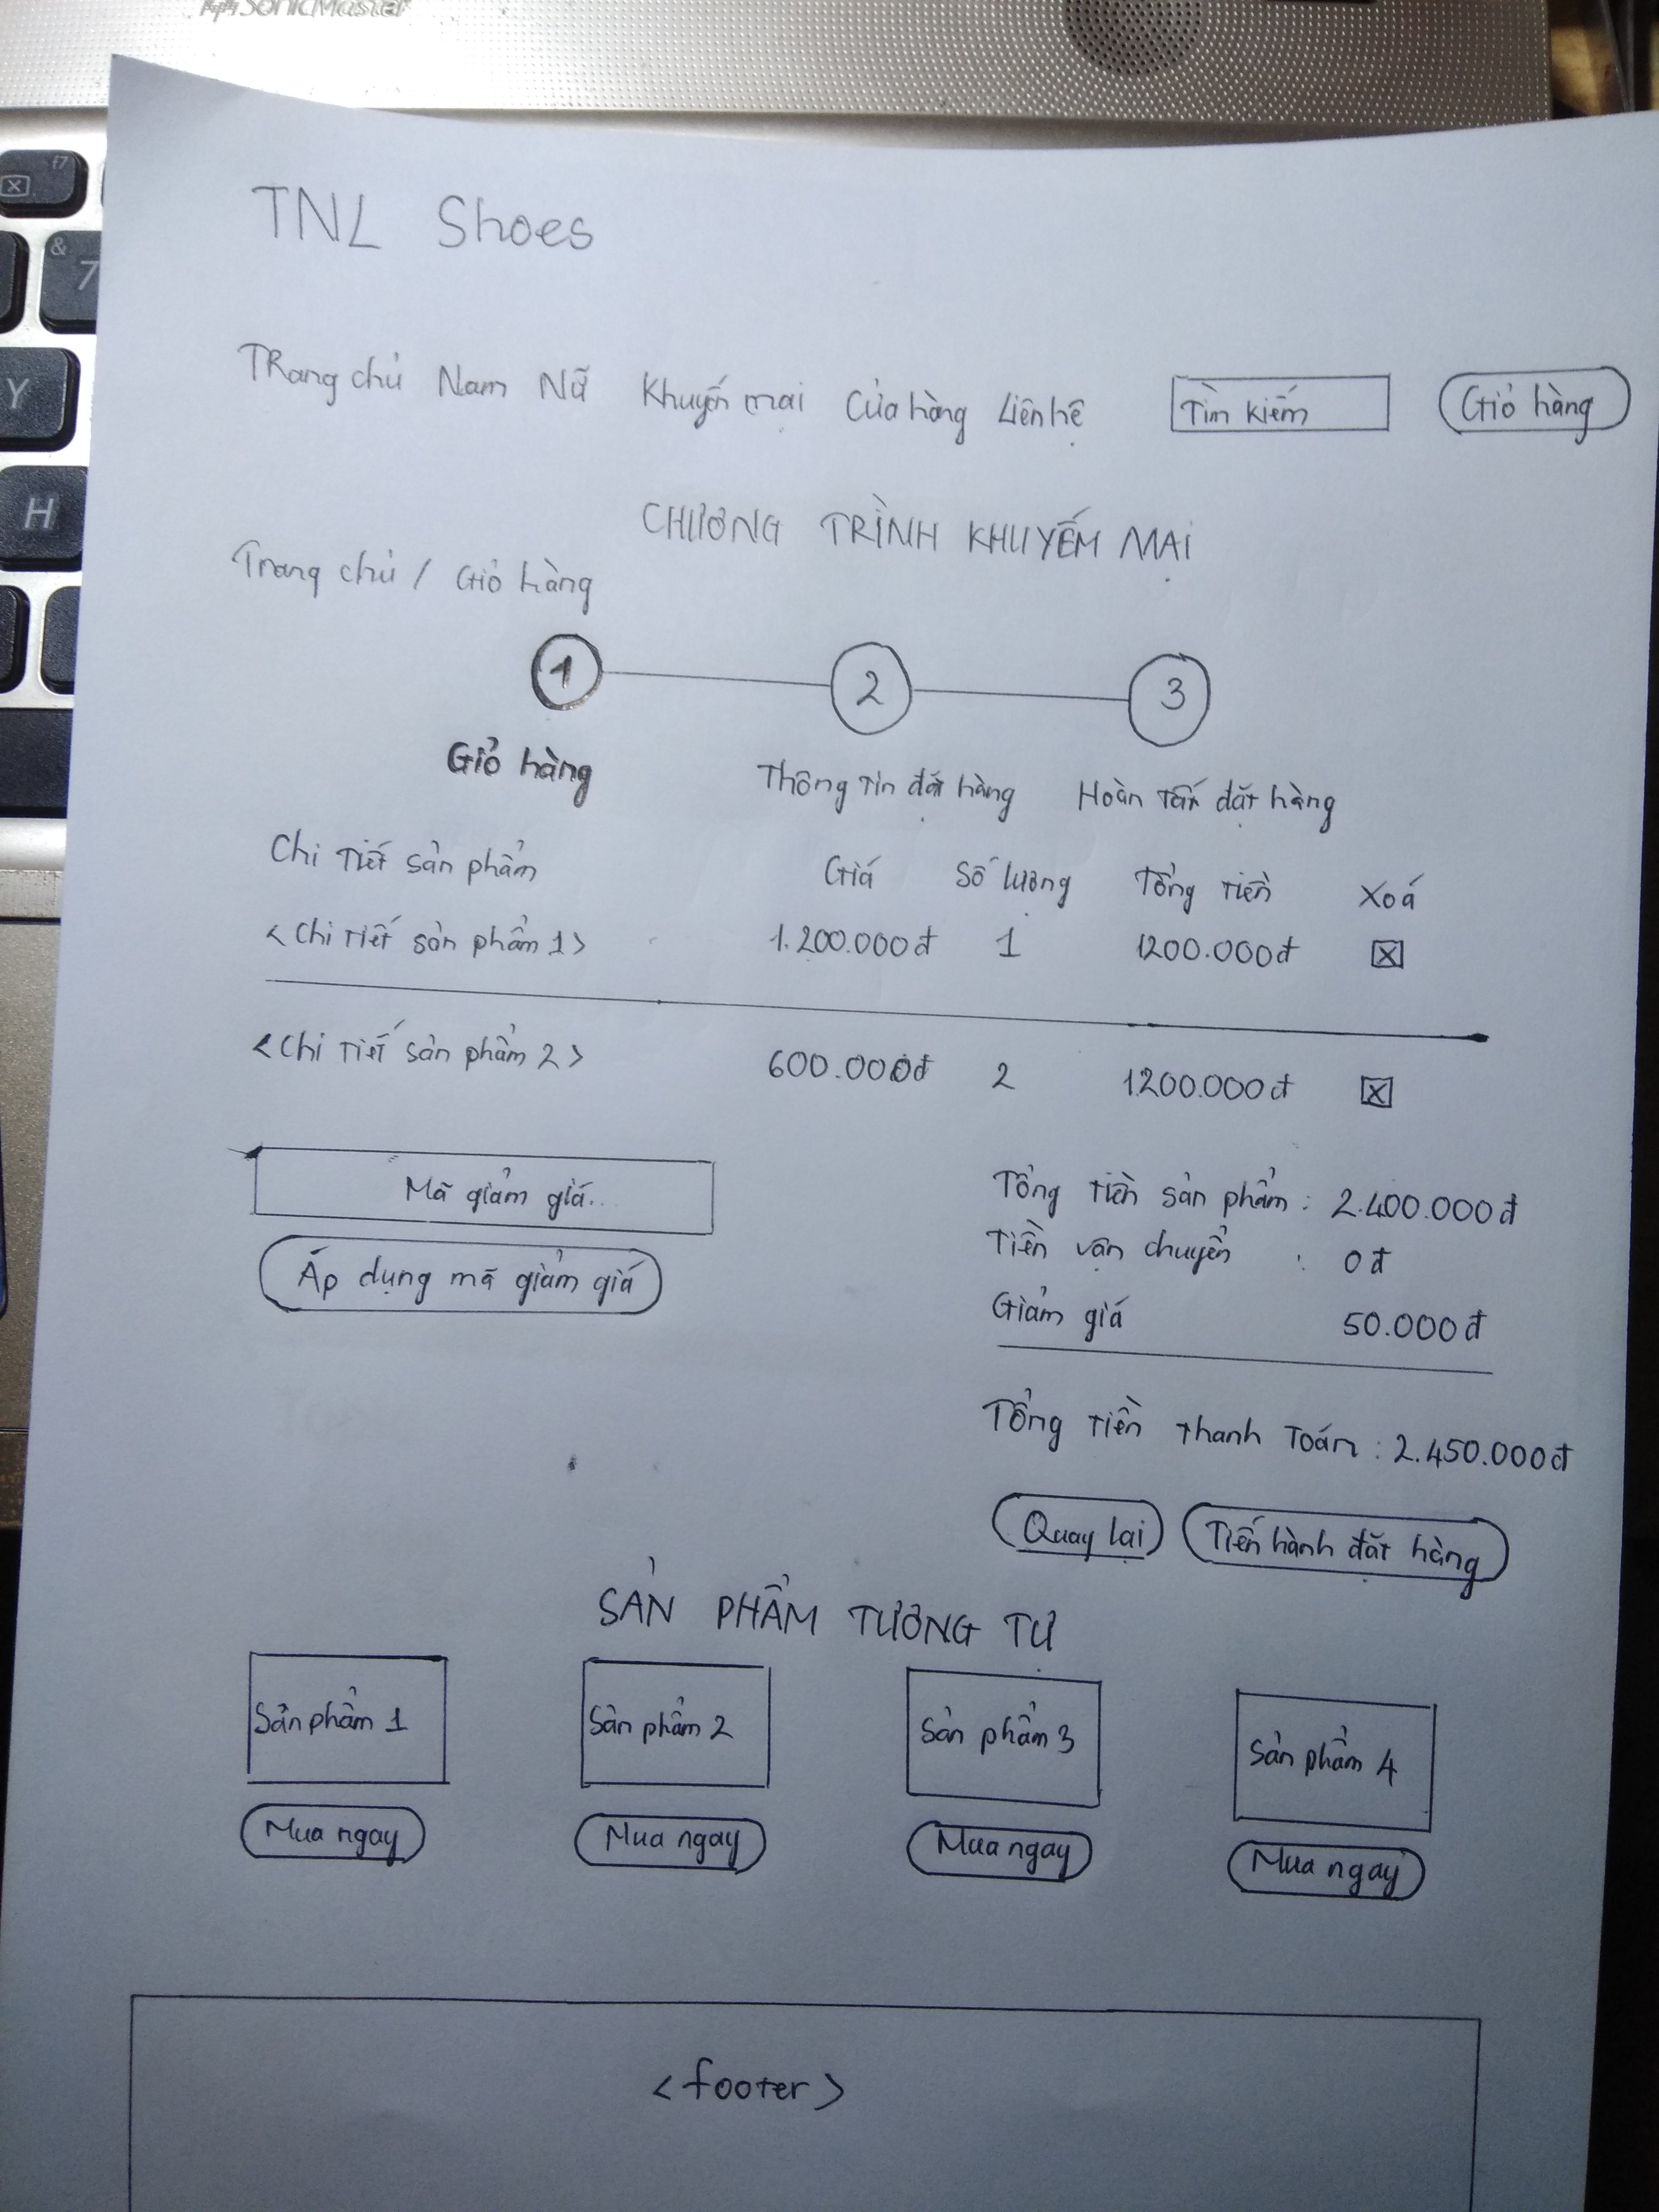 SonicMaster
f7
&
7
Y
H
TNL Shoes
TRang chủ Nam Nữ Khuyến mại Cửa hàng Liên hệ Tìm kiếm Giỏ hàng
CHƯƠNG TRÌNH KHUYẾN MẠI
Trang chủ / Giỏ hàng
1 2 3
Giỏ hàng Thông tin đặt hàng Hoàn tất đặt hàng
Chi tiết sản phẩm Giá Số lượng Tổng tiền Xoá
<Chi tiết sản phẩm 1> 1.200.000đ 1 1200.000đ X
<Chi tiết sản phẩm 2> 600.000đ 2 1.200.000đ X
Mã giảm giá...
Áp dụng mã giảm giá
Tổng tiền sản phẩm : 2.400.000đ
Tiền vận chuyển : 0đ
Giảm giá 50.000đ
Tổng tiền thanh toán : 2.450.000đ
Quay lại Tiến hành đặt hàng
SẢN PHẨM TƯƠNG TỰ
Sản phẩm 1 Sản phẩm 2 Sản phẩm 3 Sản phẩm 4
Mua ngay Mua ngay Mua ngay Mua ngay
<footer>